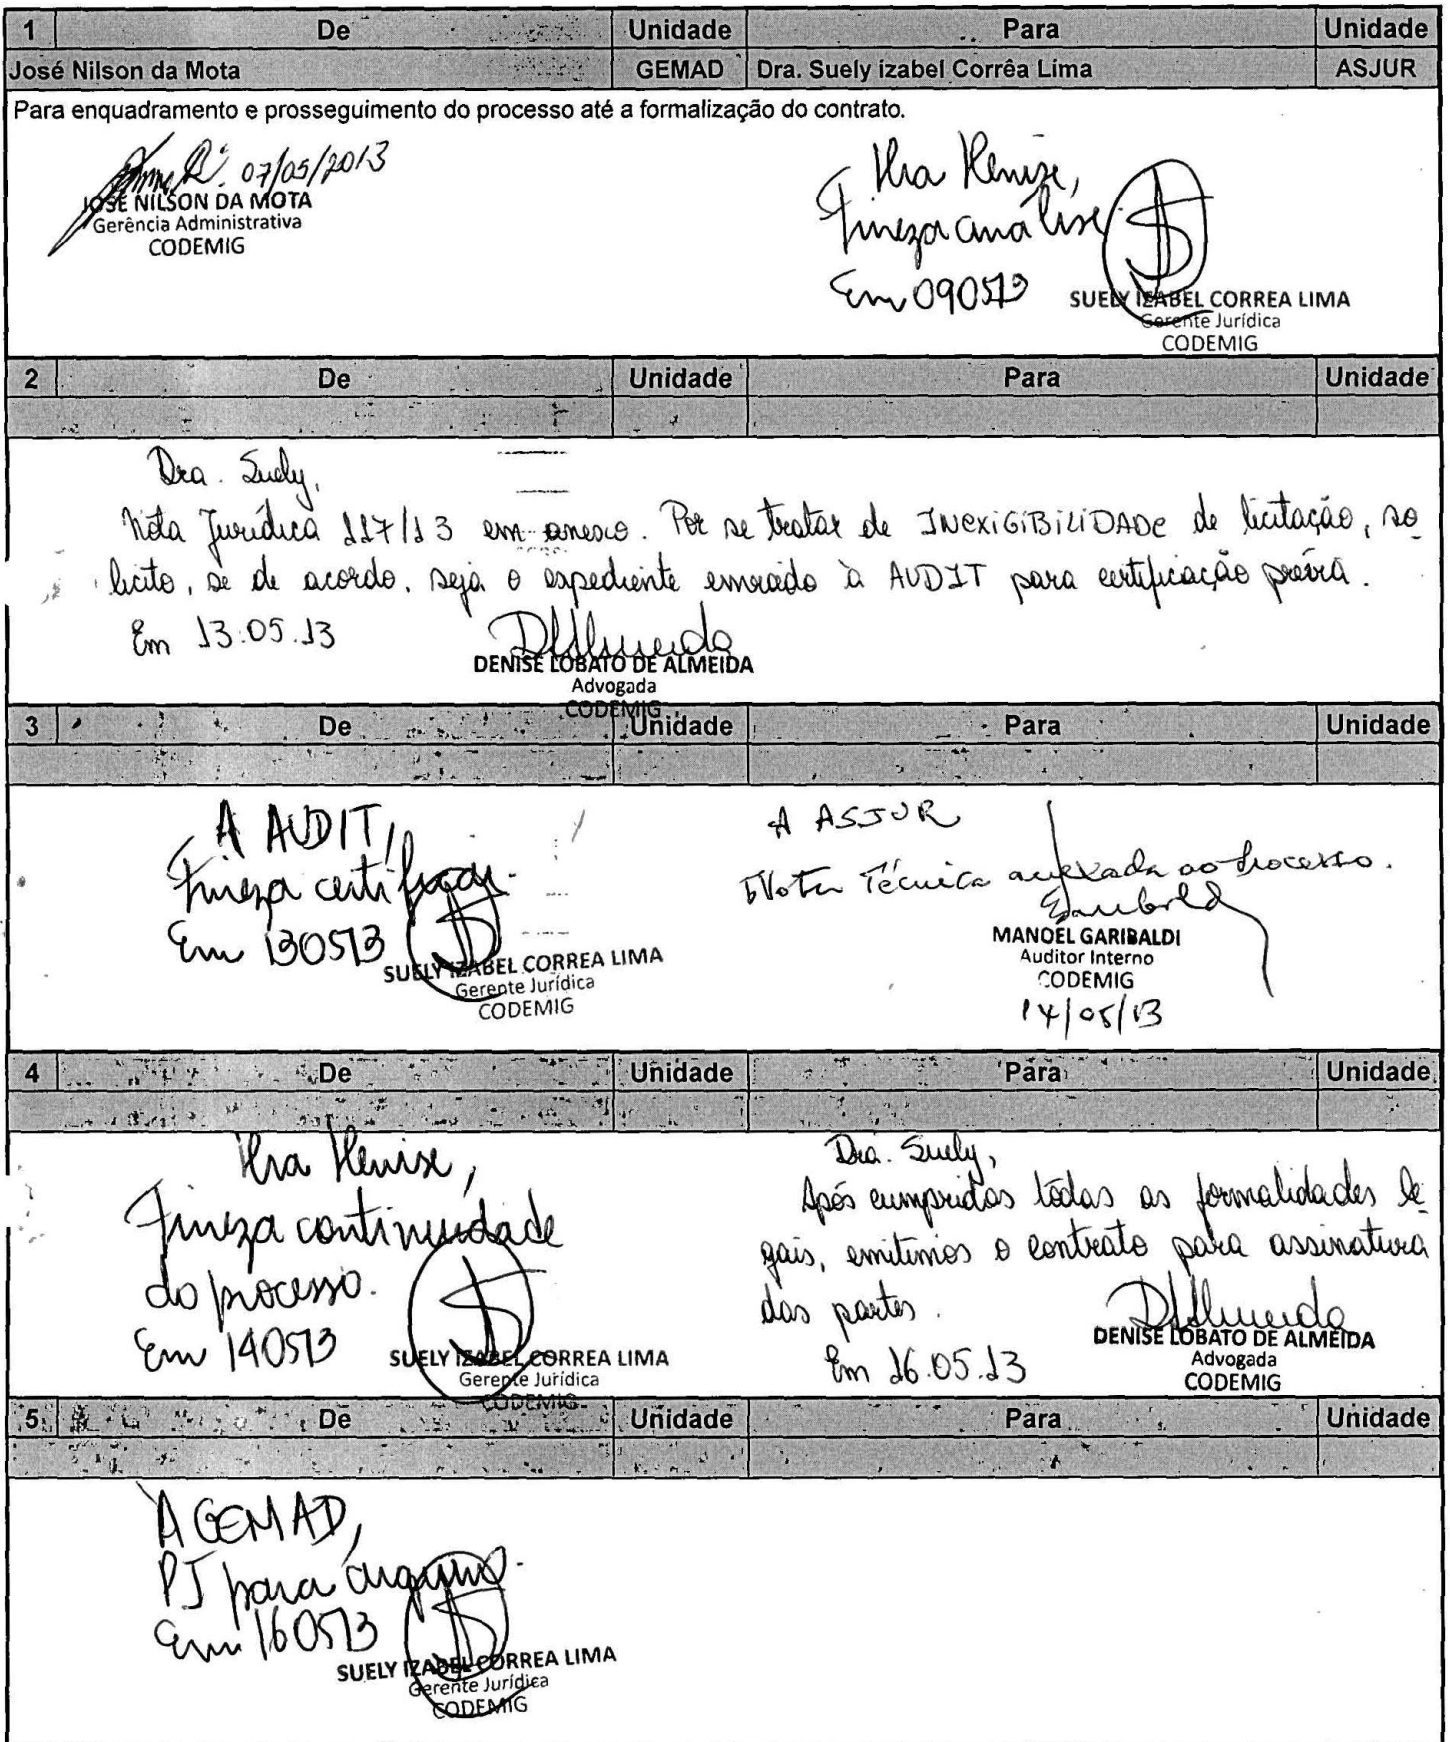 1 De Unidade Para Unidade
José Nilson da Mota GEMAD Dra. Suely izabel Corrêa Lima ASJUR
Para enquadramento e prosseguimento do processo até a formalização do contrato.
07/05/2013
JOSÉ NILSON DA MOTA
Gerência Administrativa
CODEMIG
Dra Denise,
Fineza análise.
Em 090513
SUELY IZABEL CORREA LIMA
Gerente Jurídica
CODEMIG
2 De Unidade Para Unidade
Dra. Suely,
Nota Jurídica 117/13 em anexo. Por se tratar de INEXIGIBILIDADE de licitação, so
licito, se de acordo, seja o expediente enviado à AUDIT para certificação prévia.
Em 13.05.13
DENISE LOBATO DE ALMEIDA
Advogada
CODEMIG
3 De Unidade Para Unidade
A AUDIT,
Fineza certificar.
Em 130513
SUELY IZABEL CORREA LIMA
Gerente Jurídica
CODEMIG
A ASJUR
Nota Técnica anexada ao processo.
MANOEL GARIBALDI
Auditor Interno
CODEMIG
14/05/13
4 De Unidade Para Unidade
Dra Denise,
Fineza continuidade
do processo.
Em 140513
SUELY IZABEL CORREA LIMA
Gerente Jurídica
CODEMIG
Dra. Suely,
Após cumpridas todas as formalidades le
gais, emitimos o contrato para assinatura
das partes.
Em 16.05.13
DENISE LOBATO DE ALMEIDA
Advogada
CODEMIG
5 De Unidade Para Unidade
A GEMAD,
PJ para arquivo.
Em 160513
SUELY IZABEL CORREA LIMA
Gerente Jurídica
CODEMIG